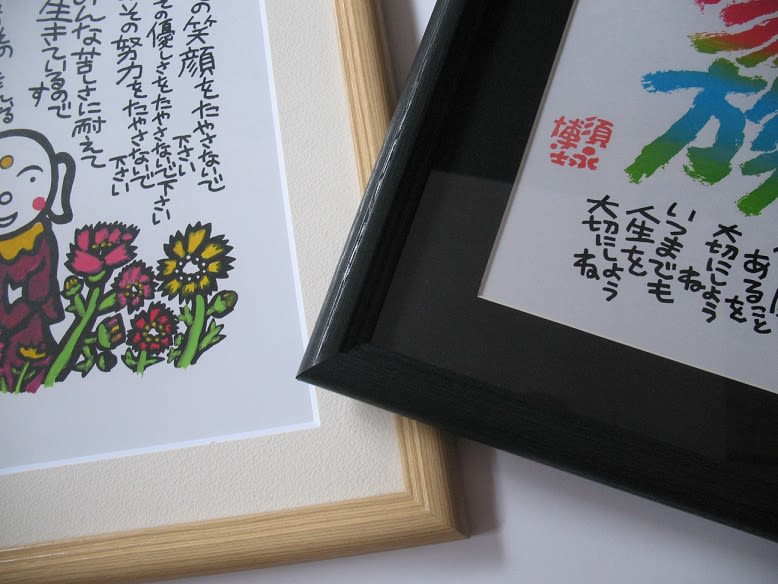 の笑顔をたやさないで
下さい
その優しさをたやさないで下さい
その努力をたやさないで
下さい
んな苦しさに耐えて
生きているので
す
族
須永
博士
あること
を
大切にしよう
ね
いつまでも
人生を
大切にしよう
ね